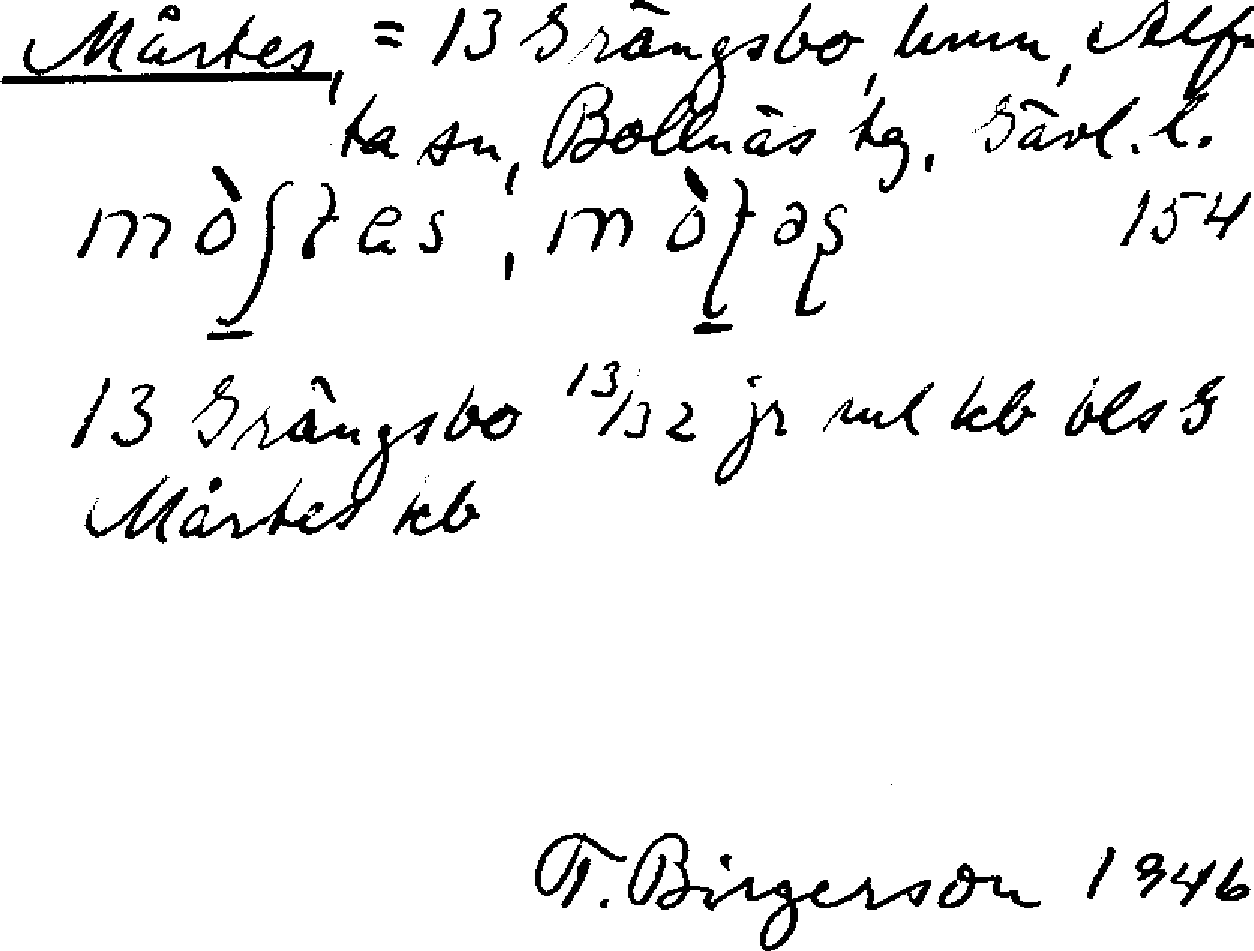 Mårtes, = 13 Grängsbo, hmn, Alf-
ta sn, Bollnäs tg. Gävl. l.
154
13 Grängsbo 13/32 jr ml kb bls G
Mårtes kb
T. Birgerson 1946